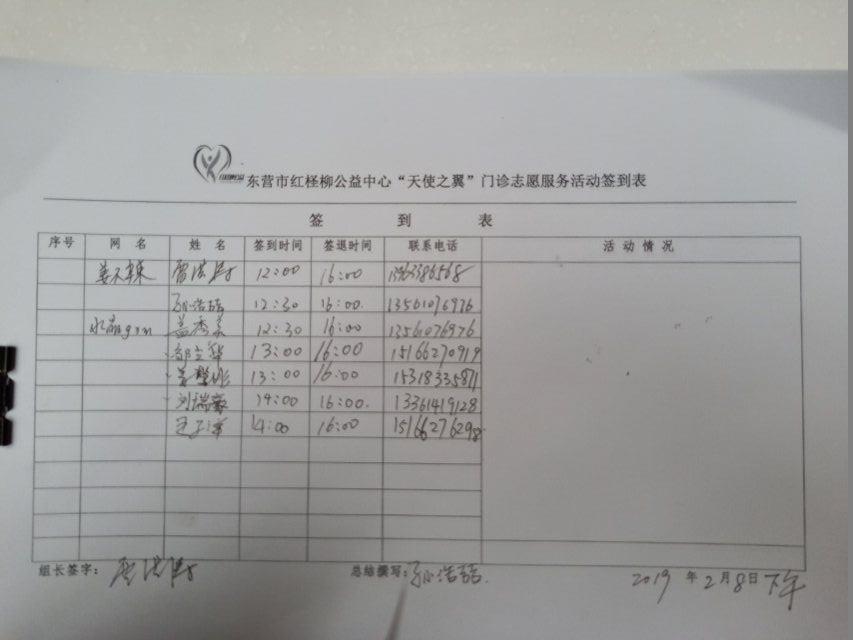 东营市红柽柳公益中心“天使之翼”门诊志愿服务活动签到表
签 到 表
序号 网 名 姓 名 签到时间 签退时间 联系电话 活 动 情 况
姜不辣 12:00 16:00
孙浩喆 12:30 16:00. 13561076976
盖秀美 12:30 16:00 13561076976
邹立华 13:00 16:00 15166270919
13:00 16:00 15318335871
刘瑞 14:00 16:00. 13361419128
14:00 16:00 15166276298
组长签字: 总结撰写:孙浩喆.
2019 年 2 月 8 日下午